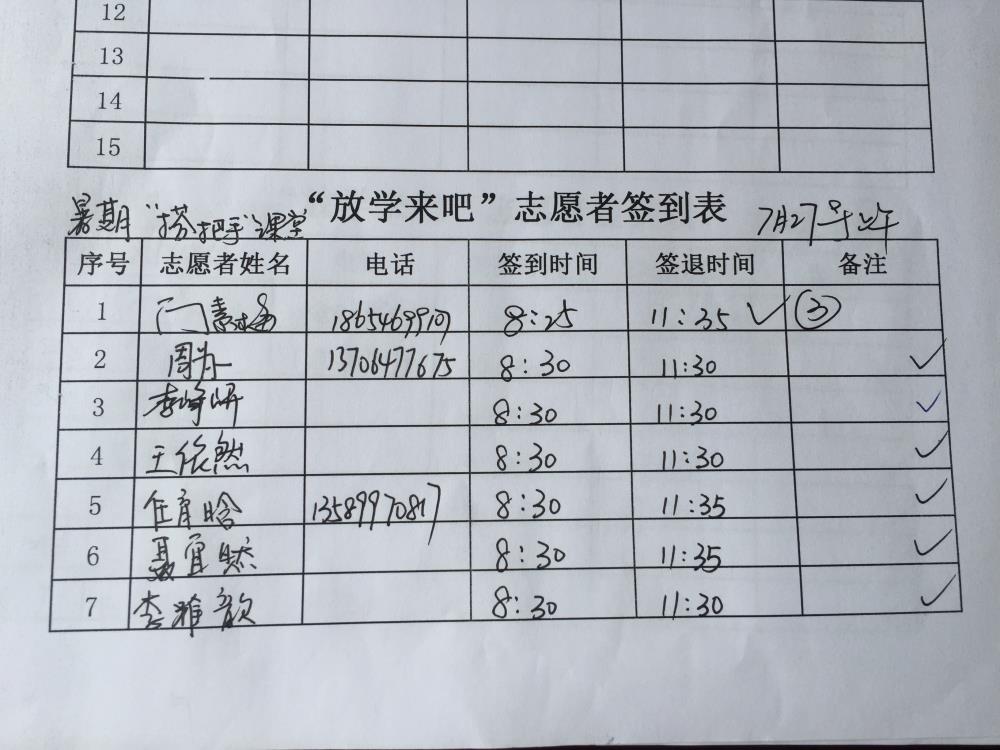 12
13
14
15
暑期"搭把手"课堂 "放学来吧"志愿者签到表 7月27号上午
序号 志愿者姓名 电话 签到时间 签退时间 备注
1 8:25 11:35 ✓ ③
2 周为一 13706477675 8:30 11:30 ✓
3 李峥妍 8:30 11:30 ✓
4 王依然 8:30 11:30 ✓
5 任彦晗 13589970817 8:30 11:35 ✓
6 聂宜然 8:30 11:35 ✓
7 李雅歆 8:30 11:30 ✓